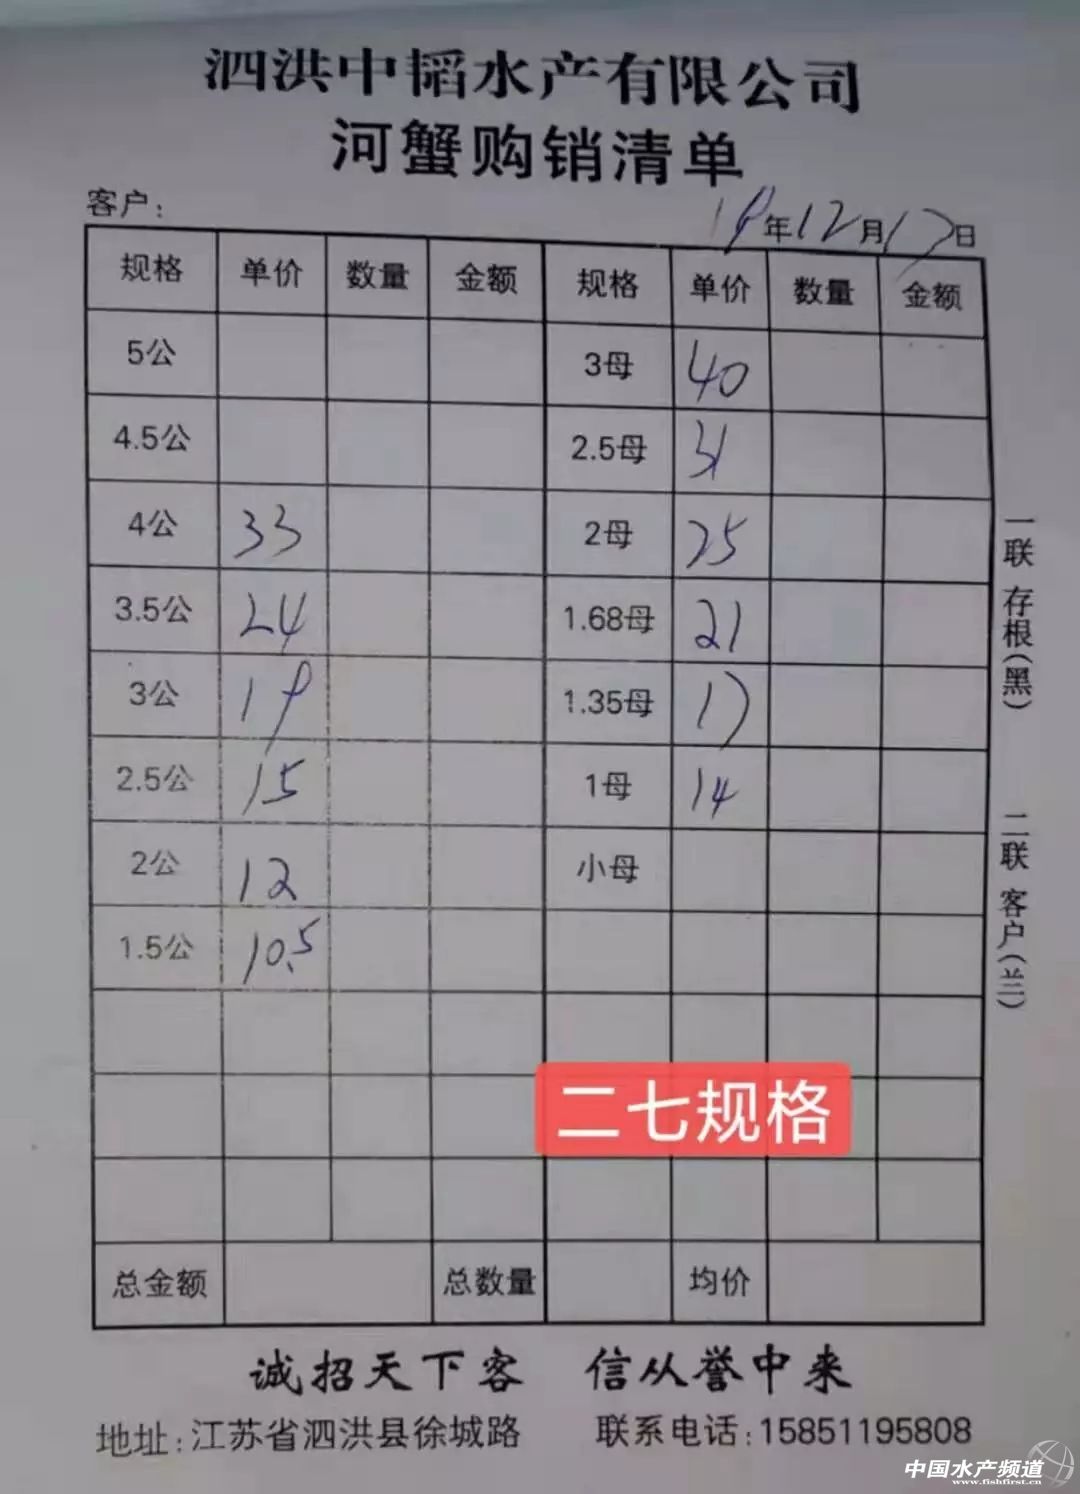 泗洪中韬水产有限公司
河蟹购销清单
客户：
19年12月17日
规格 单价 数量 金额 规格 单价 数量 金额
5公 3母 40
4.5公 2.5母 31
4公 33 2母 25
3.5公 24 1.68母 21
3公 19 1.35母 17
2.5公 15 1母 14
2公 12 小母
1.5公 10.5
二七规格
总金额 总数量 均价
一联 存根(黑) 二联 客户(兰)
诚招天下客 信从誉中来
地址:江苏省泗洪县徐城路 联系电话:15851195808
中国水产频道
www.fishfirst.cn